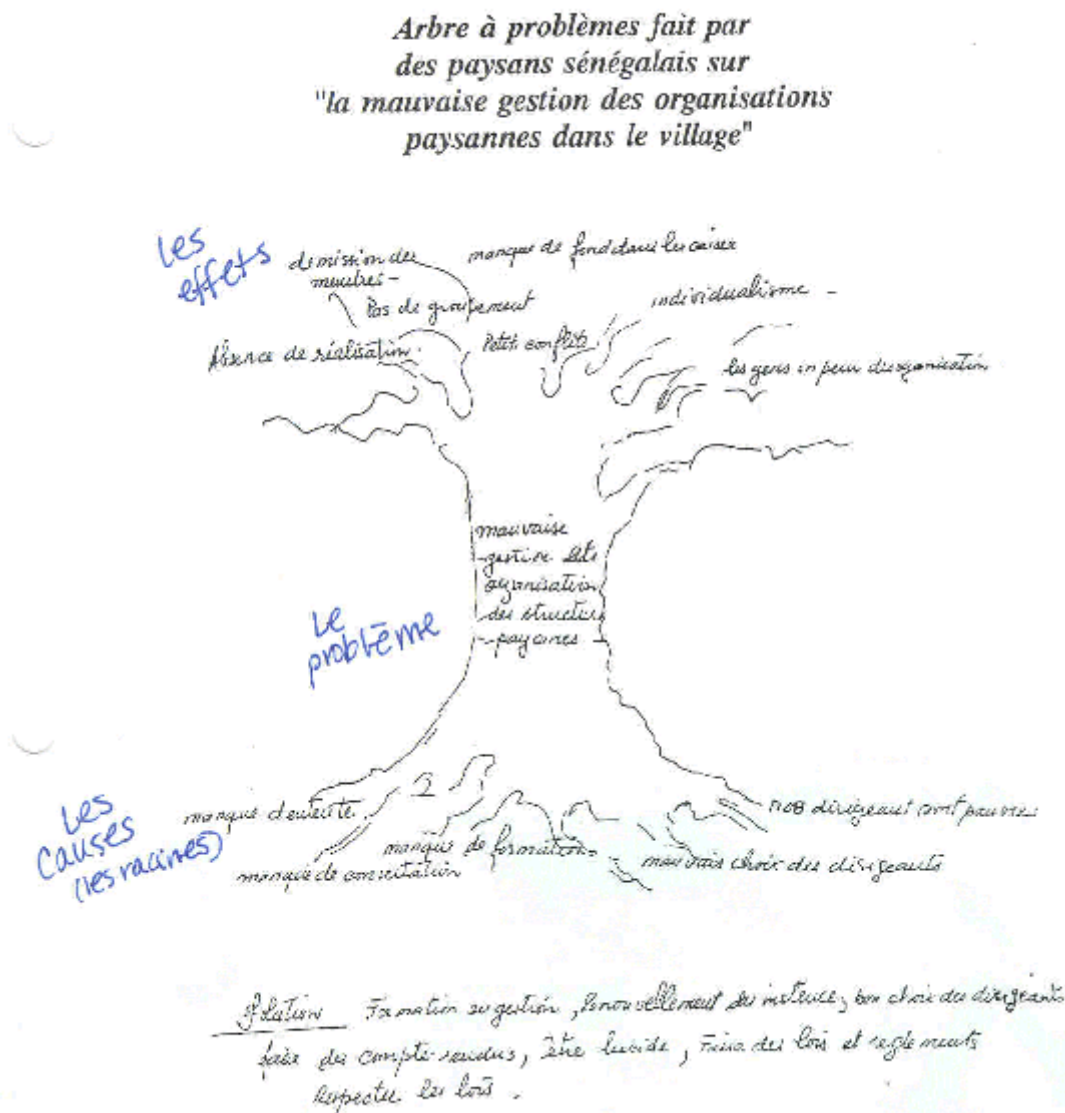 Arbre à problèmes fait par
des paysans sénégalais sur
"la mauvaise gestion des organisations
paysannes dans le village"
Les
effets
demission des
meubres -
manque de fond dans les caiser
Pas de groupement
individualisme -
Absence de réalisation.
Petit conflits
les gens un peur disorganisation
mauvaise
gestion
organisation
des structure
paysanes
Le
problème
Les
causes
(les racines)
manque d'entente
nos dirigeant sont pauvres
manque de formation
mauvais choix des dirigeants
manque de concertation
Solution Formation en gestion, Renouvellement des instence, bon choix des dirigeants
faire des compte-rendus, être lucide, des lois et reglements
Respecter les lois.